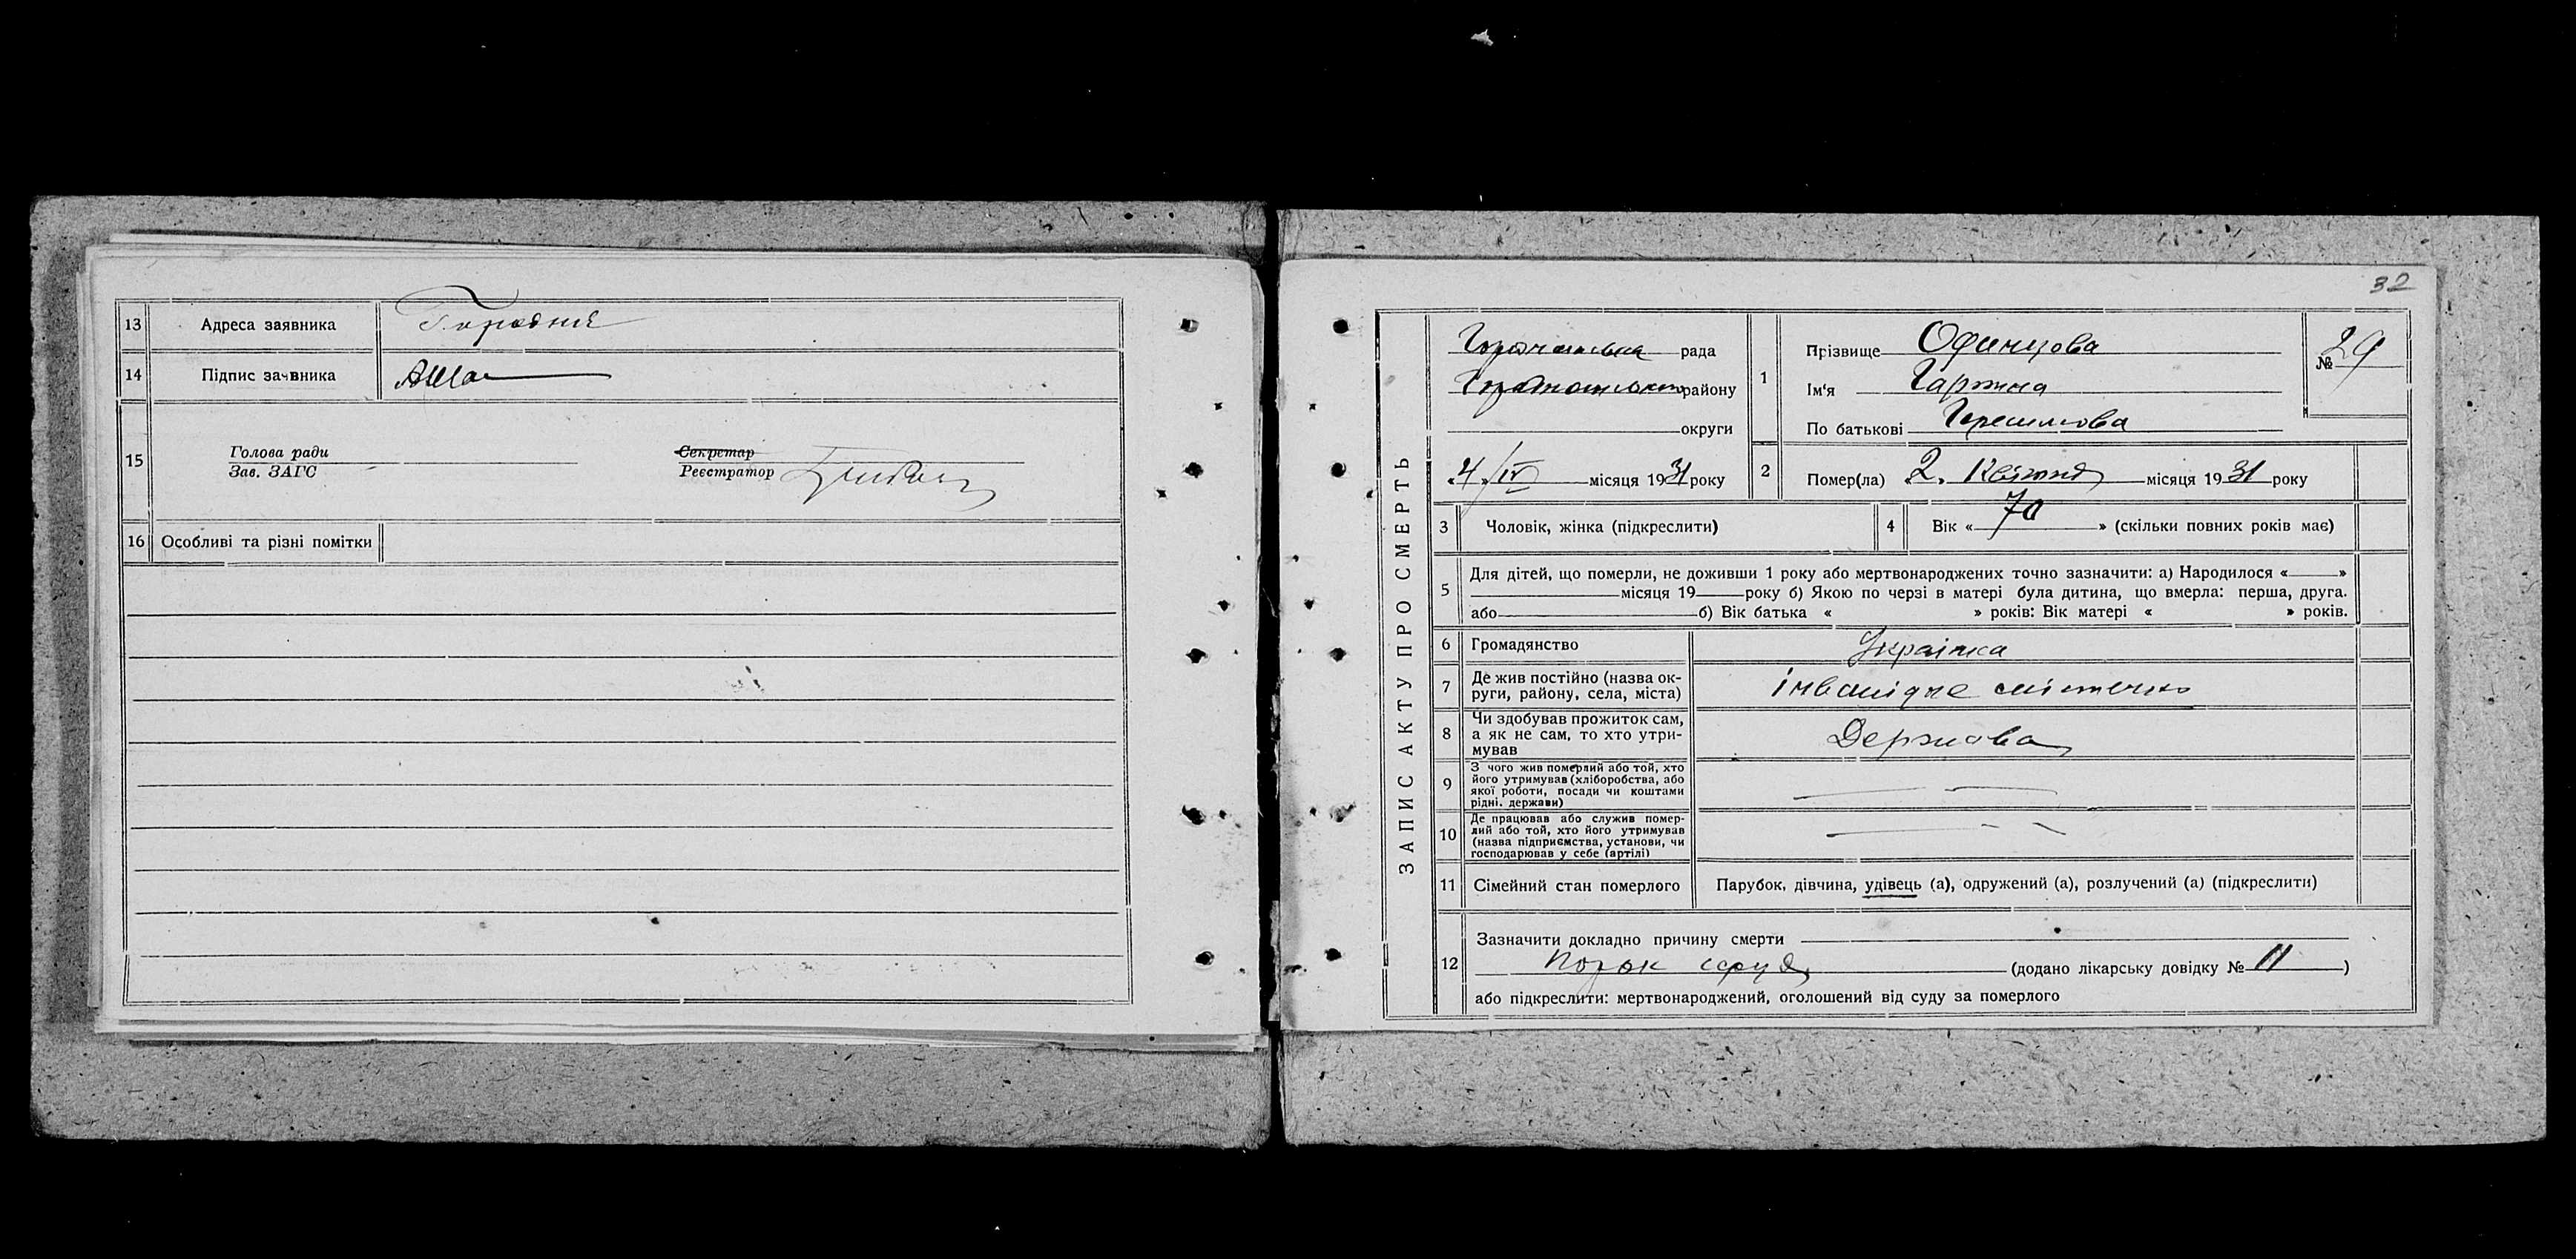 13 Адреса заявника Городня
14 Підпис заявника
15 Голова ради
Зав. ЗАГС
Секретар
Реєстратор
16 Особливі та різні помітки
32
ЗАПИС АКТУ ПРО СМЕРТЬ
рада
району
округи
«4» IV місяця 1931 року
1 Прізвище Одинцова
Ім'я
По батькові
№ 29
2 Помер(ла) «2» Квітня місяця 1931 року
3 Чоловік, жінка (підкреслити)
4 Вік « 70 » (скільки повних років має)
5 Для дітей, що померли, не доживши 1 року або мертвонароджених точно зазначити: а) Народилося « »
місяця 19 року б) Якою по черзі в матері була дитина, що вмерла: перша, друга.
або б) Вік батька « » років: Вік матері « » років.
6 Громадянство Українка
7 Де жив постійно (назва ок-
руги, району, села, міста) інвалідне містечко
8 Чи здобував прожиток сам,
а як не сам, то хто утри-
мував Держава
9 З чого жив померлий або той, хто
його утримував (хліборобства, або
якої роботи, посади чи коштами
рідні. держави)
10 Де працював або служив помер-
лий або той, хто його утримував
(назва підприємства, установи, чи
господарював у себе (артілі)
11 Сімейний стан померлого Парубок, дівчина, удівець (а), одружений (а), розлучений (а) (підкреслити)
12 Зазначити докладно причину смерти
Порок серця (додано лікарську довідку № 11 )
або підкреслити: мертвонароджений, оголошений від суду за померлого